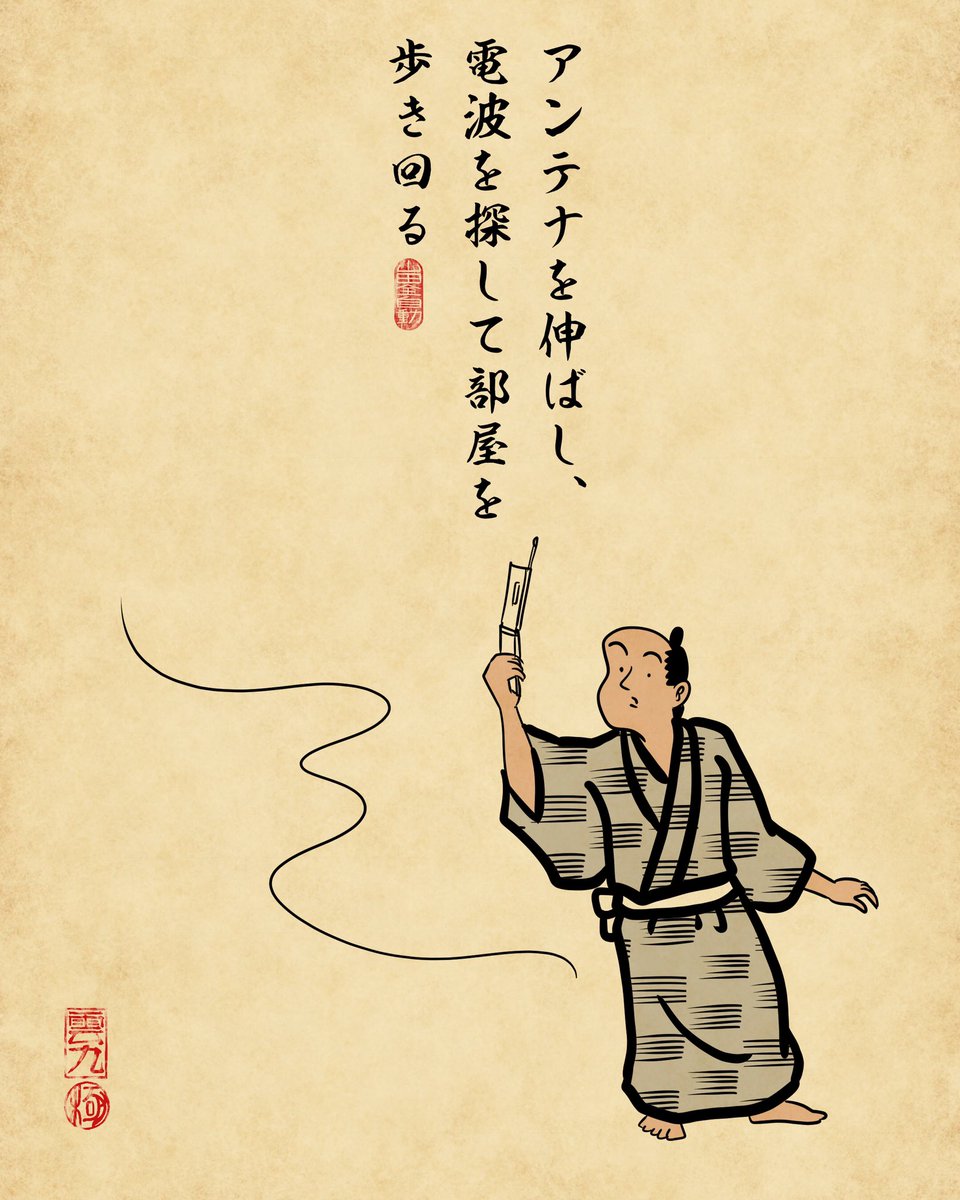 アンテナを伸ばし、
電波を探して部屋を
歩き回る